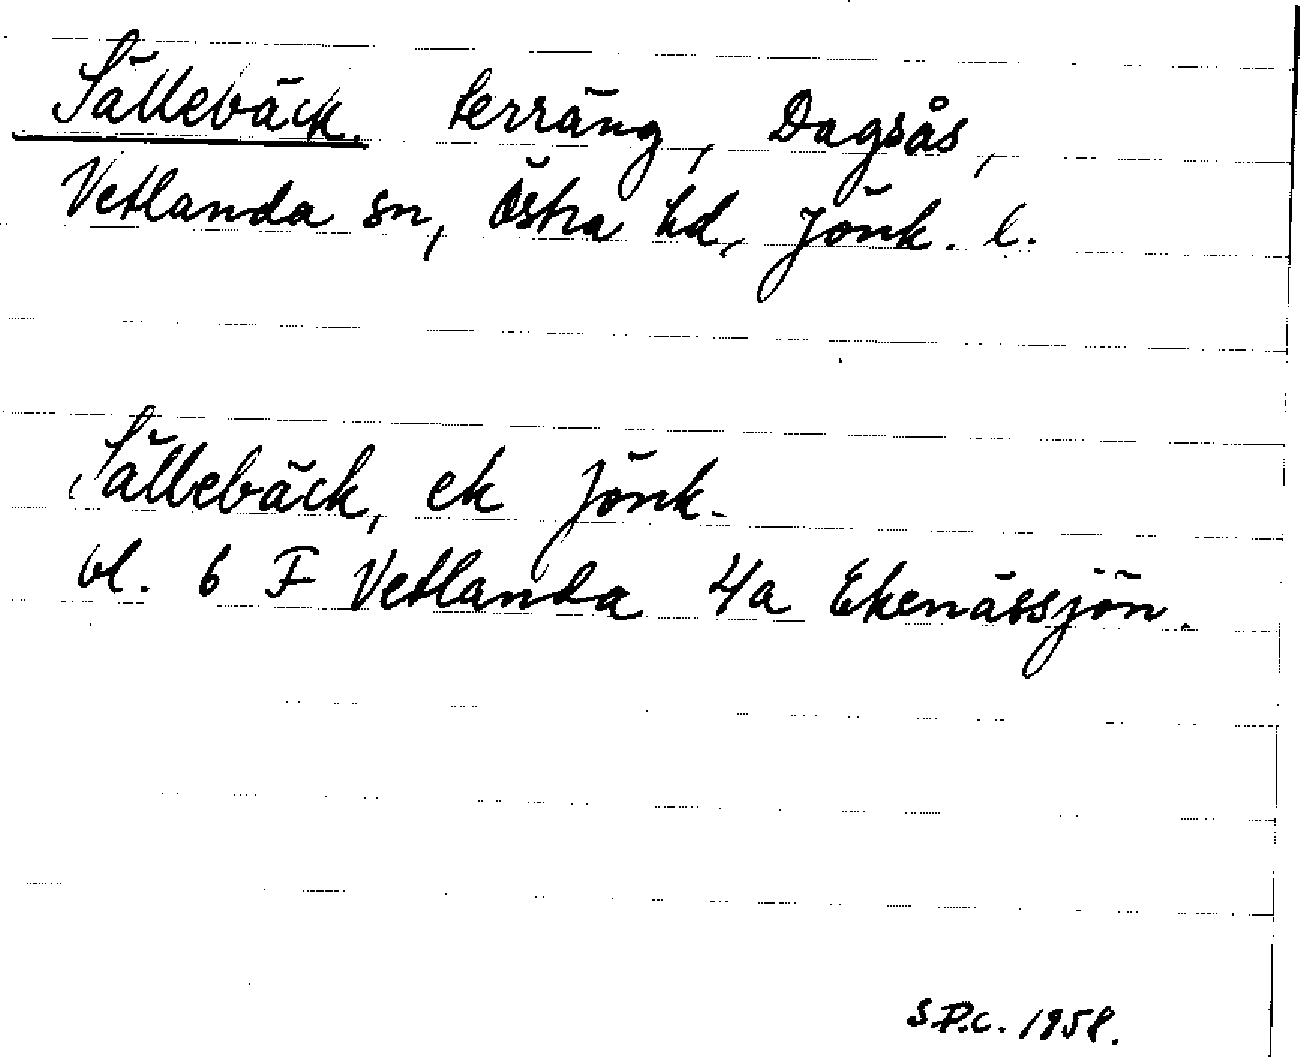 Sällebäck. terräng, Dagsås,
Vetlanda sn, Östra hd, Jönk. l.
Sällebäck, ek Jönk.
bl. 6 F Vetlanda 4a Ekenässjön.
S.D.C. 1958.